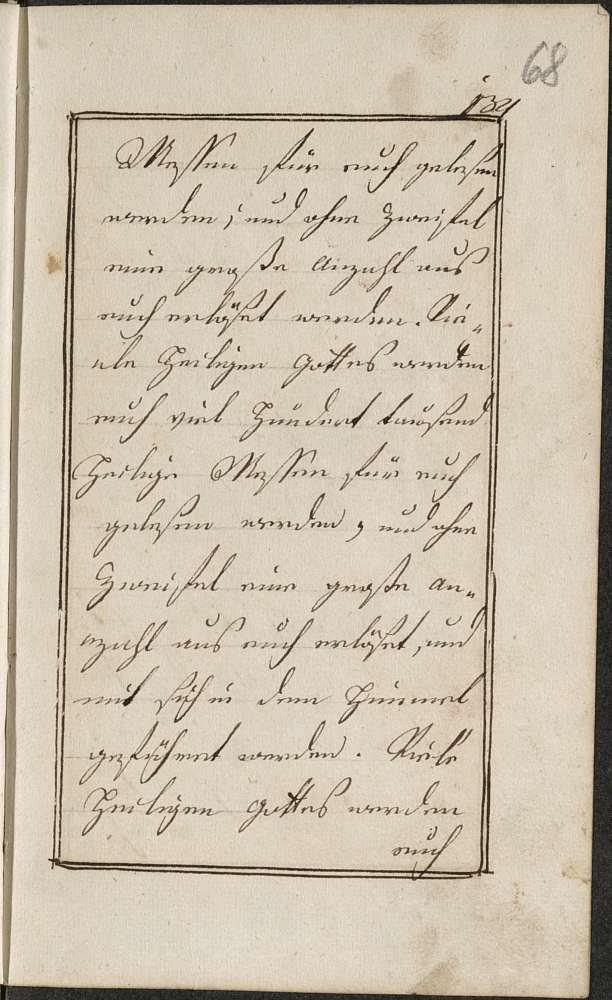 68
131
Messen für euch gelesen
werden; und ohne Zweifel
eine große Anzahl aus
euch erlößet werden. Vie-
ele Heiligen Gottes werden
euch viel Hundert tausend
Heilige Messen für euch
gelesen werden, und ohne
Zweifel eine große An-
nzahl aus euch erlößet, und
mit sich in dem Himmel
gefühert werden. Viele
Heiligen Gottes werden
euch